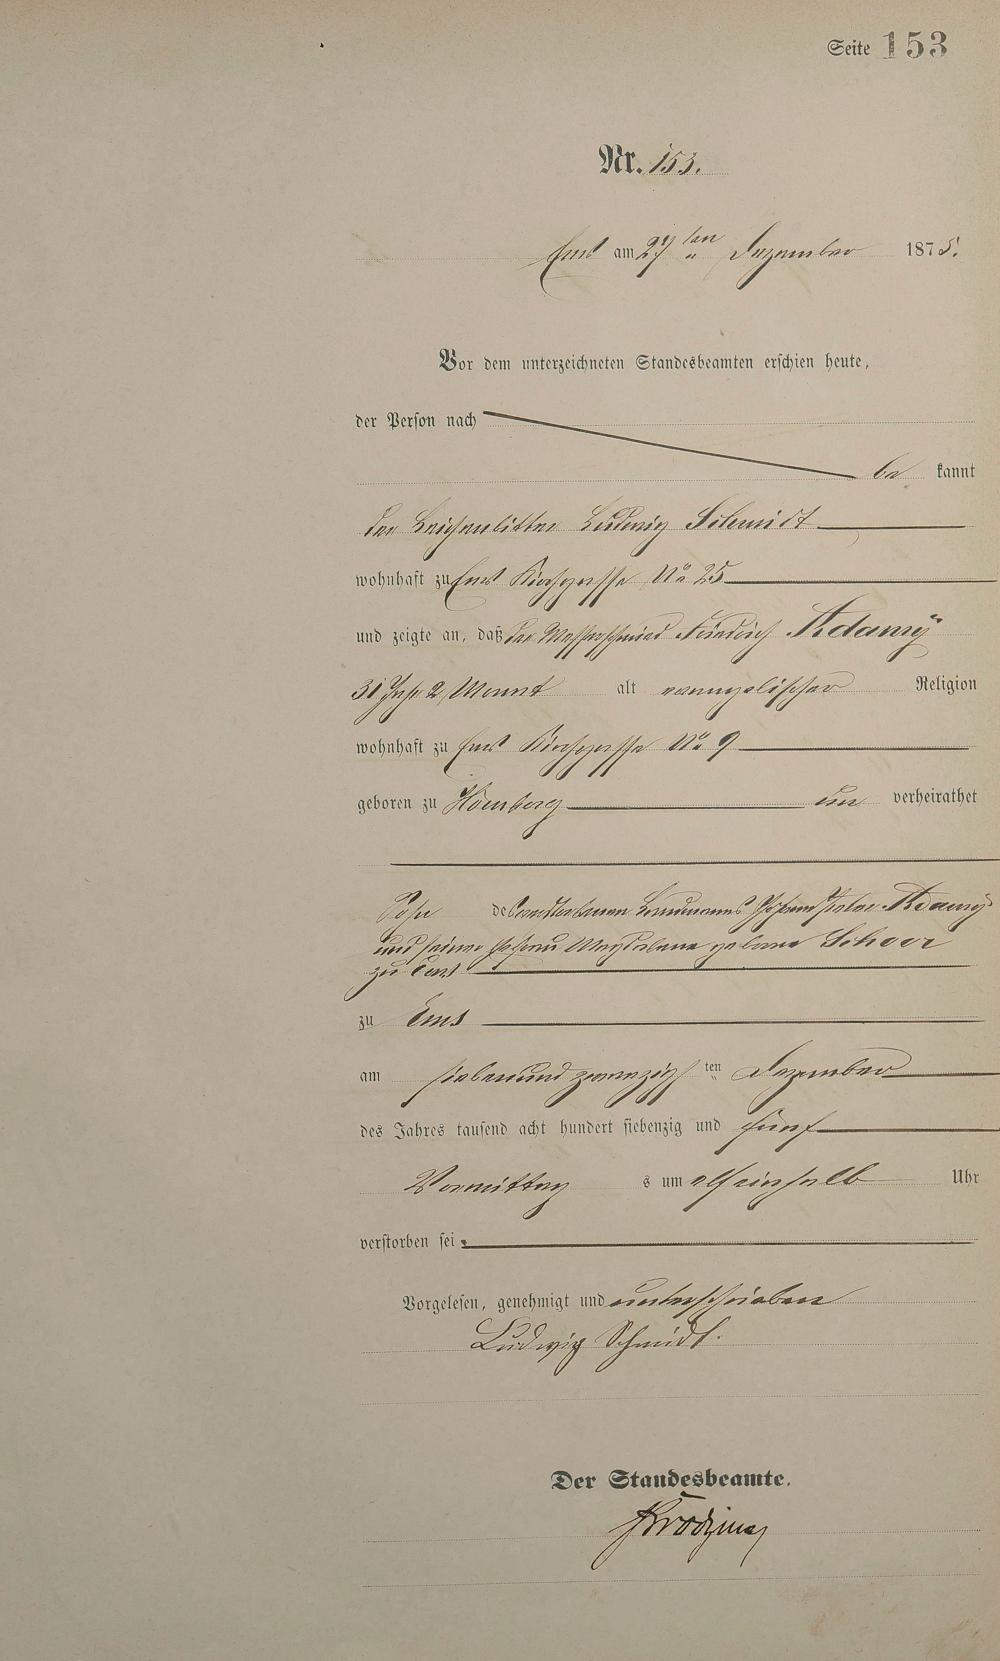 Seite 153
Nr. 153.
Ems am 27 ten Dezember 1875.
Vor dem unterzeichneten Standesbeamten erschien heute,
der Person nach
be kannt
der Leichenbitter Ludwig Schmidt
wohnhaft zu Ems Kirchgasse No 25
und zeigte an, daß der Messerschmied Friedrich Adamÿ
31 Jahr 2 Monat alt evangelischer Religion
wohnhaft zu Ems Kirchgasse No 9
geboren zu Homberg un verheirathet
Sohn des verstorbenen Johann Peter Adamÿ
und seiner Ehefrau Magdalena geborne Schorr
zu Ems
zu Ems
am siebenundzwanzigsten Dezember
des Jahres tausend acht hundert siebenzig und fünf
Vormittag s um elfeinhalb Uhr
verstorben sei.
Vorgelesen, genehmigt und unterschrieben
Ludwig Schmidt.
Der Standesbeamte.